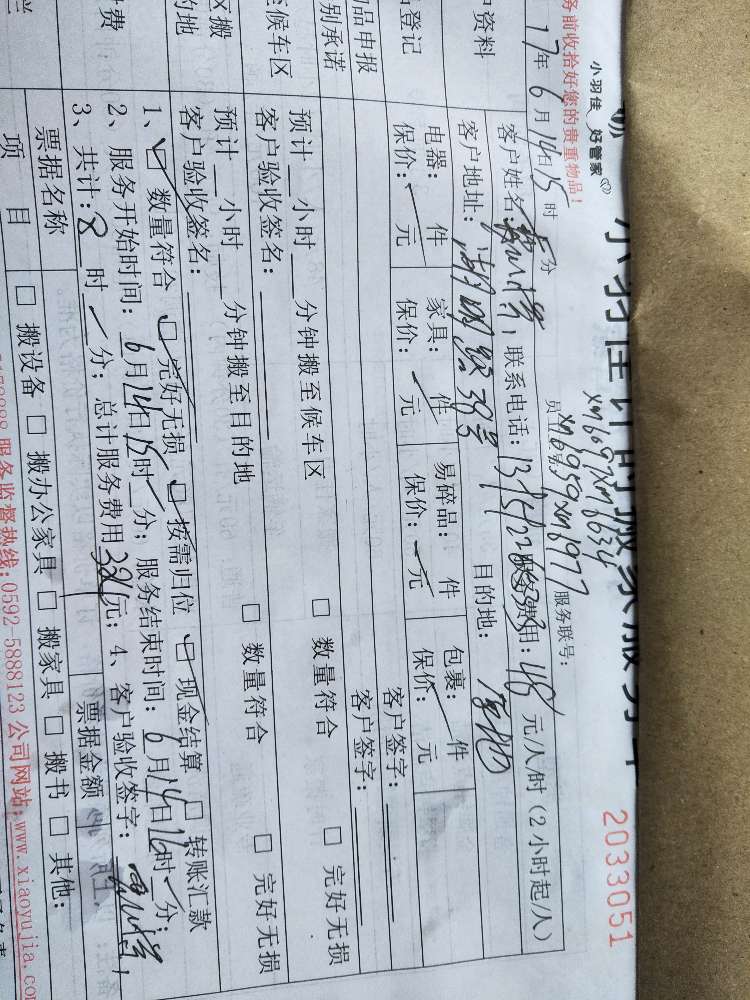 小羽佳 好管家
小羽佳计时搬家服务
2033051
务前收拾好您的贵重物品!
xm6697 xm6634
xm6959 xm6977
服务联号:
17年6月14日15时 分
客户姓名: 联系电话: 服务费用:48元/人/时(2小时起/人)
户资料
客户地址:湖明路38号 目的地:原地
登记
电器: 件 家具: 件 易碎品: 件 包裹: 件
保价: 元 保价: 元 保价: 元 保价: 元
品申报
客户签字:
别承诺
客户签字:
候车区
预计 小时 分钟搬至候车区 □ 数量符合 □ 完好无损
客户验收签名:
区搬
的地
预计 小时 分钟搬至目的地 □ 数量符合 □ 完好无损
客户验收签名:
费
1、☑ 数量符合 ☑ 完好无损 ☑ 按需归位 ☑ 现金结算 □ 转账汇款
2、服务开始时间:6月14日15时 分;服务结束时间:6月14日16时 分;
3、共计:8时 分;总计服务费用384元;4、客户验收签字:
票据名称
票据金额
项 目
□ 搬设备 □ 搬办公家具 □ 搬家具 □ 搬书 □ 其他:
服务监督热线:0592-5888123 公司网站:www.xiaoyujia.co